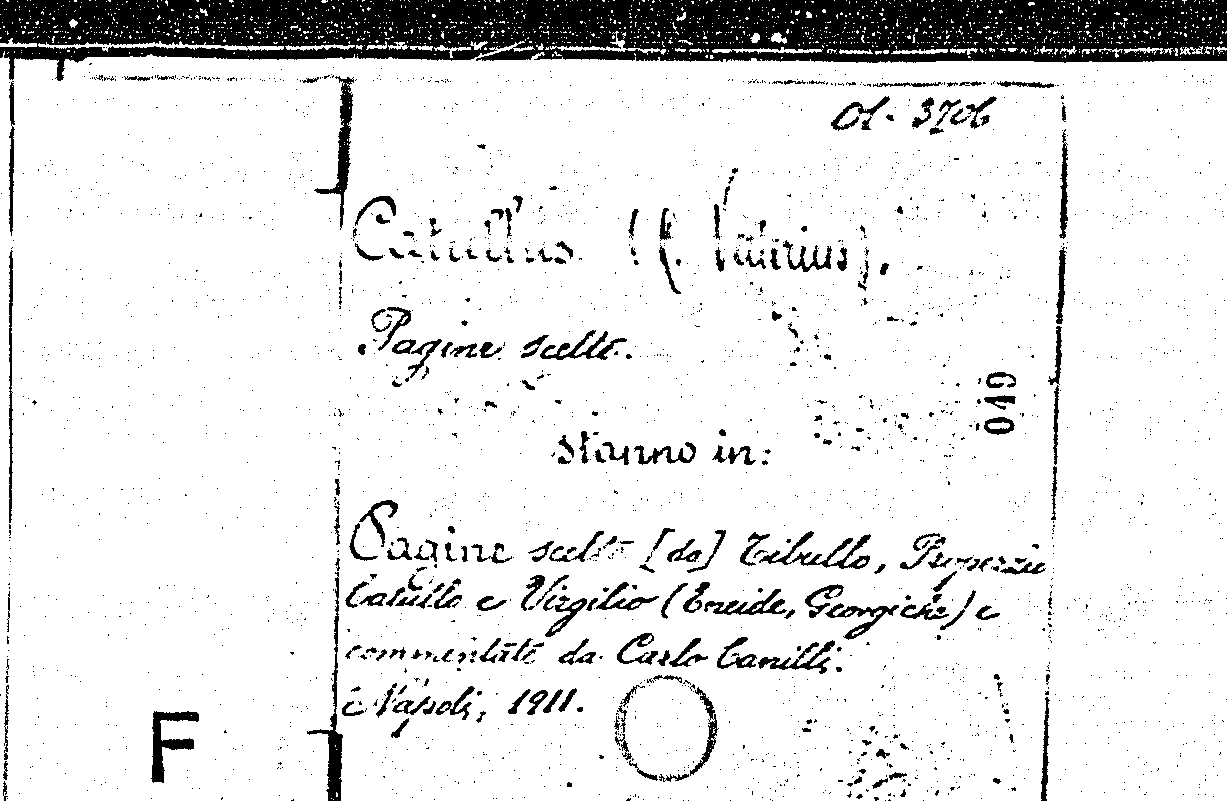 Ol- 3706
Catullus (C. Valerius).
Pagine scelte.
049
stanno in:
Pagine scelte [da] Tibullo, Properzio
Catullo e Virgilio (Eneide, Georgiche) e
commentate da Carlo Canilli.
Napoli, 1911.
F